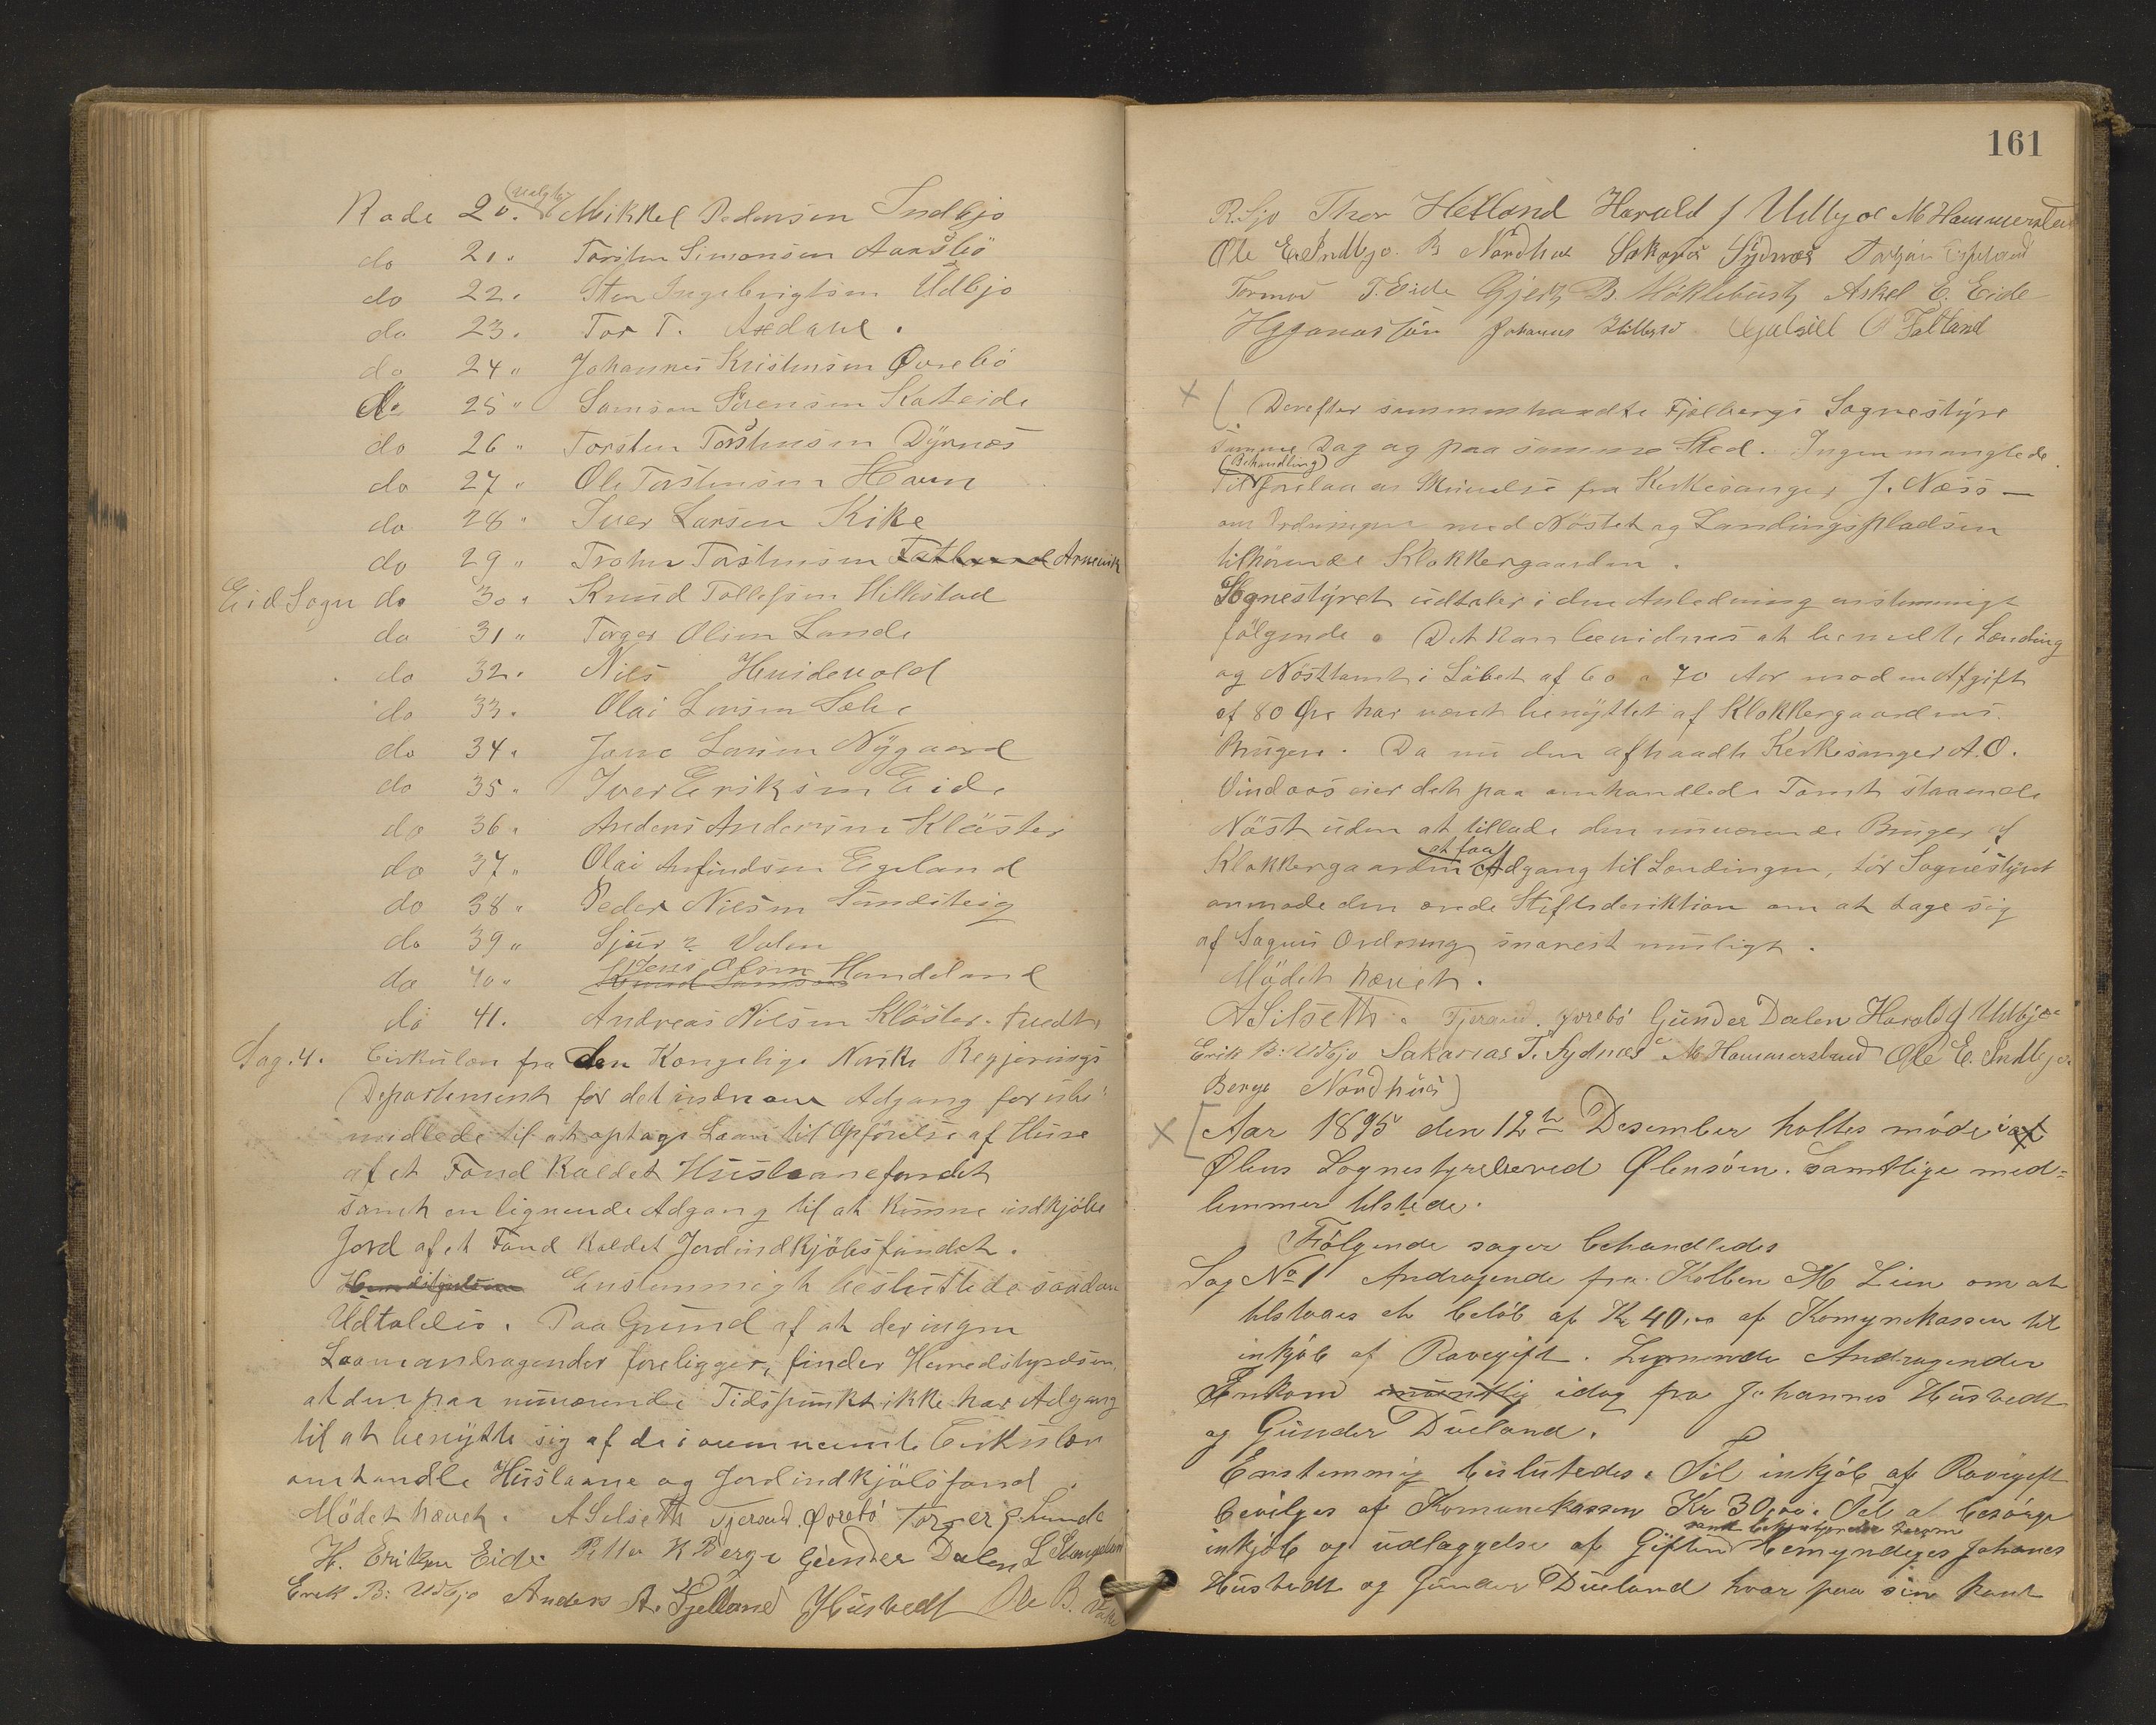 Rode 20. (valgte) Mikkel Pedersen Indbjo
do 21. Torsten Simonsen Aarsbö
do 22. Sten Ingebrigtsen Udbjo
do 23. Tor T. Axdahl.
do 24 " Johannes Kristensen Øvrebö
do 25 " Samson Sörensen Kasteide
do 26 " Torsten Torstensen Dyrnæs
do 27 " Ole Torstensen Havn
do 28 " Iver Larsen Kike
do 29 " Torstensen Arnevik
Eid Sogn do 30. Knud Tollefsen Hillestad
do 31 " Torger Olsen Lande
do 32. Nils Hvidevold
do 33. Olai Larsen Sæbe
do 34. Jone Larsen Nygaard
do 35. Iver Eriksen Eide
do 36. Anders Andersen Klöster
do 37 " Olai Anfindsen Egeland
do 38 " Peder Nilsen Sundsteig
do 39 " Sjur ? Valen
do 40 " Jens Olsen Handeland
do 41. Andreas Nilsen Klöster. Tuedt
Sag. 4. Cirkulær fra den Kongelige Norske Regjerings
Departement for det indre om Adgang for ube-
midlede til at optage Laan til Opförelse af Huse
af et Fond kaldet Huslaanefondet
samt en lignende Adgang til at kunne indkjöbe
Jord af et Fond kaldet Jordindkjöbsfondet.
Enstemmigt besluttede saadan
Udtalelse. Paa Grund af at der ingen
Laaneandragender foreligger, finder Herredstyrelsen,
at den paa nuværende Tidspunkt ikke har Adgang
til at benytte sig af de i ovennævnte Cirkulær
omhandle Huslaane og Jordindkjöbsfond.
Mödet hævet. A Silseth Tjerand. Øvrebö Torger O. Lunde
H. Eriksen Eide. K Berge Gunder Dalen L
Erik B. Udbjo Anders A. Fjelland J Husvedt Ole B.
161
R. Sjo Thor Hetland Harald J Udbjoe M Hammersland
Ole E. Indbjo. B Nordhus Sakarias Sydnæs
Tormod T. Eide Gjert B. Möklebust Askel E. Eide
Johannes O Tatland
Derefter sammenhandte Fjelbergs Sognestyre
samme Dag og paa samme Sted. Ingen manglede.
Til (Behandling) forelaa en Skrivelse fra Kirkesanger J. Næss —
om Ordningen med Nöstet og Landingspladsen
tilhörende Klokkergaarden.
Sognestyret udtaler i den Anledning enstemmigt
fölgende. Det kan bevidnes at benævnte Landing
og Nösttomt i Löbet af 60 a 70 Aar mod en Afgift
af 80 Øre har været benyttet af Klokkergaardens
Bruger. Da nu den afsatte Kirkesanger A. O.
Vindaas eier det paa omhandlede Tomt staaende
Nöst uden at tillade den nuværende Bruger af
Klokkergaarden at faa Adgang til Landingen, tör Sognestyret
anmode den ærede Stiftsdirektion om at tage sig
af Sagens Ordning snarest muligt.
Mödet hævet.
A Silseth. Tjerand. Øvrebö Gunder Dalen Harald J Udbjoe
Erik B. Udbjo Sakarias T. Sydnæs M Hammersland Ole E. Indbjo.
Berge Nordhus
Aar 1895 den 12te Desember holtes möde i
Ølens Sognestyre ved Ølensöen. Samtlige med-
lemmer tilstede.
Fölgende sager behandledes
Sag No 1 Andragende fra Kolben M Lien om at
tilstaaes et belöb af Kr 40,00 af Komunekassen til
inkjöb af Rovegift. Lignende Andragender
Inkom idag fra Johannes Husvedt
og Gunder Dueland.
Enstemmig beslutedes. Til inkjöb af Rovegift
bevilges af Komunekassen Kr 30,00. Til at besörge
inkjöb og udlæggelse af Giften samt bekjentgjörelse herom bemyndiges Johanes
Husvedt og Gunder Dueland hvær paa sin kant